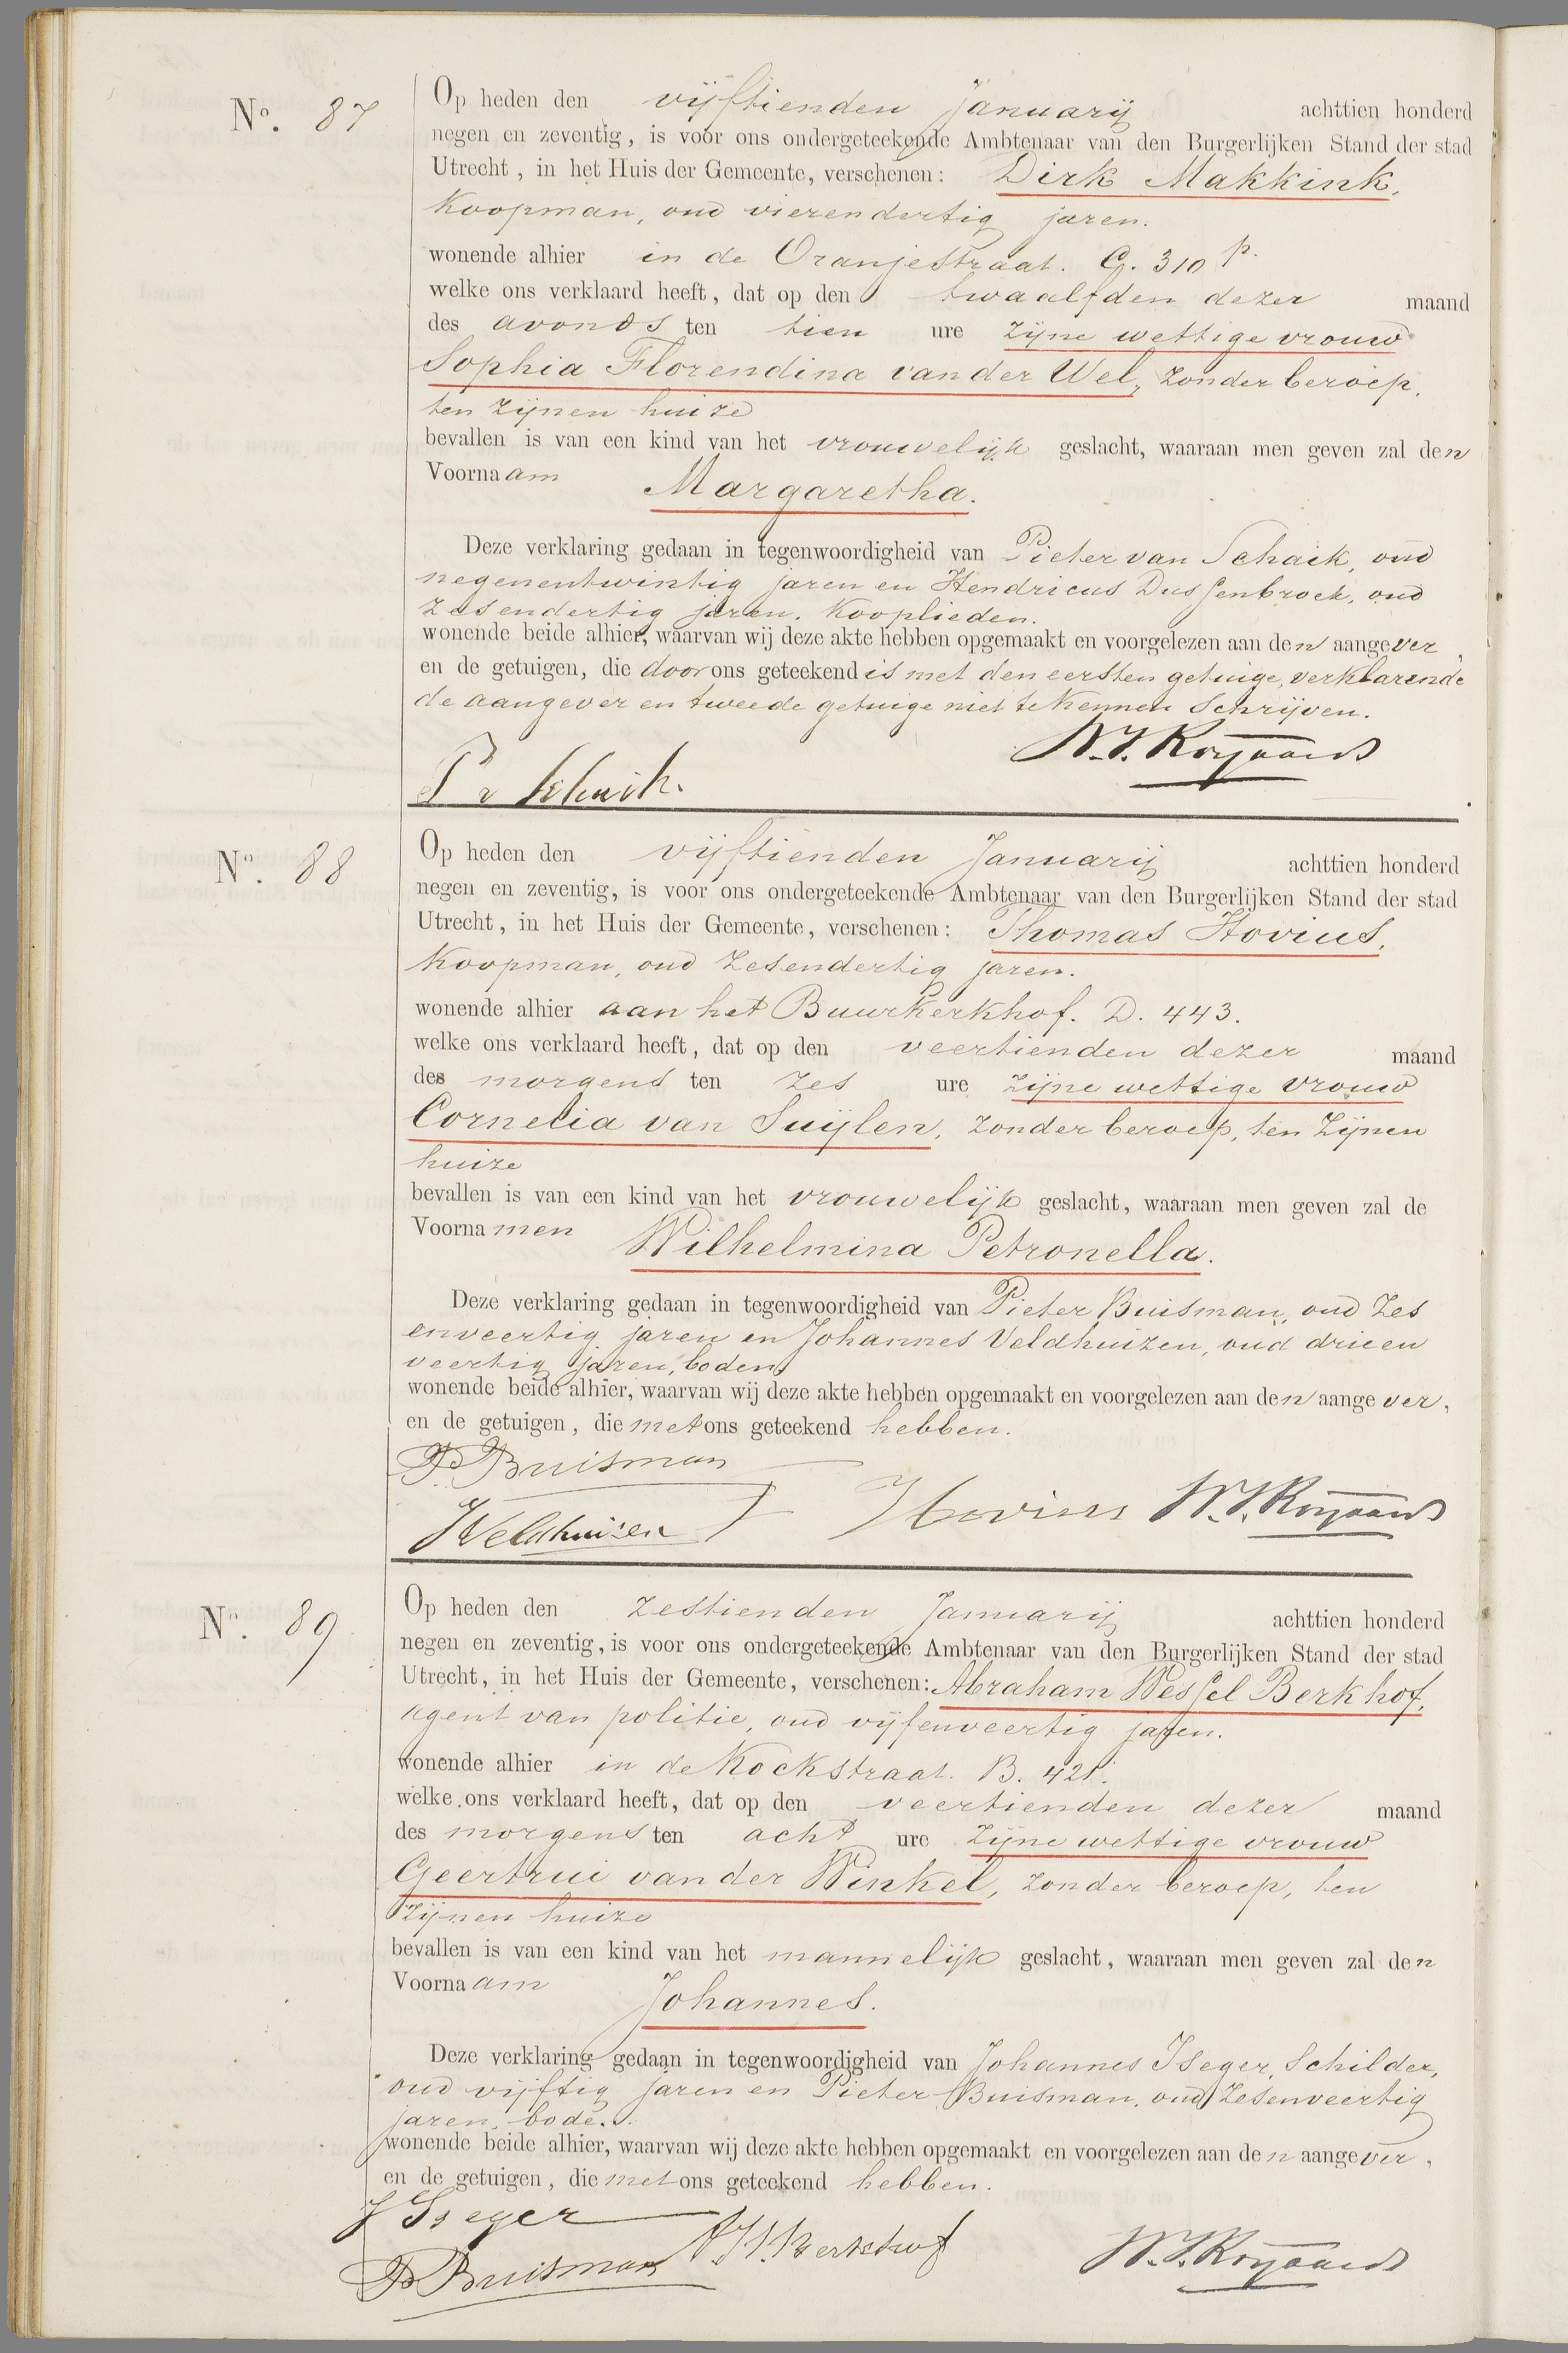 No. 87
Op heden den vijftienden Januarij achttien honderd
negen en zeventig, is voor ons ondergeteekende Ambtenaar van den Burgerlijken Stand der stad
Utrecht, in het Huis der Gemeente, verschenen: Dirk Makkink,
Koopman, oud vierendertig jaren.
wonende alhier in de Oranjestraat. G. 310 p.
welke ons verklaard heeft, dat op den twaalfden dezer maand
des avonds ten tien ure zijne wettige vrouw
Sophia Florendina van der Wel, zonder beroep,
ten zijnen huize
bevallen is van een kind van het vrouwelijk geslacht, waaraan men geven zal den
Voornaam Margaretha.
Deze verklaring gedaan in tegenwoordigheid van Pieter van Schaik, oud
negenentwintig jaren en Hendricus Dussenbroek, oud
zesendertig jaren. Kooplieden.
wonende beide alhier, waarvan wij deze akte hebben opgemaakt en voorgelezen aan den aangever,
en de getuigen, die door ons geteekend is met den eersten getuige, verklarende
de aangever en tweede getuige niet te kennen schrijven.
P v Schaik. W.J. Royaards
No. 88
Op heden den vijftienden Januarij achttien honderd
negen en zeventig, is voor ons ondergeteekende Ambtenaar van den Burgerlijken Stand der stad
Utrecht, in het Huis der Gemeente, verschenen: Thomas Hovius,
Koopman, oud zesendertig jaren.
wonende alhier aan het Buurkerkhof. D. 443.
welke ons verklaard heeft, dat op den veertienden dezer maand
des morgens ten zes ure zijne wettige vrouw
Cornelia van Suijlen, zonder beroep, ten zijnen
huize
bevallen is van een kind van het vrouwelijk geslacht, waaraan men geven zal de
Voornamen Wilhelmina Petronella.
Deze verklaring gedaan in tegenwoordigheid van Pieter Buisman, oud zes
enveertig jaren en Johannes Veldhuizen, oud drieen
veertig jaren, boden,
wonende beide alhier, waarvan wij deze akte hebben opgemaakt en voorgelezen aan den aangever,
en de getuigen, die met ons geteekend hebben.
P Buisman
JVeldhuizen Hovius W.J. Royaards
No. 89
Op heden den zestienden Januarij achttien honderd
negen en zeventig, is voor ons ondergeteekende Ambtenaar van den Burgerlijken Stand der stad
Utrecht, in het Huis der Gemeente, verschenen: Abraham Wessel Berkhof,
agent van politie, oud vijfenveertig jaren.
wonende alhier in de Kockstraat. B. 421.
welke ons verklaard heeft, dat op den veertienden dezer maand
des morgens ten acht ure zijne wettige vrouw
Geertrui van der Winkel, zonder beroep, ten
zijnen huize
bevallen is van een kind van het mannelijk geslacht, waaraan men geven zal den
Voornaam Johannes.
Deze verklaring gedaan in tegenwoordigheid van Johannes IJseger, Schilder,
oud vijftig jaren en Pieter Buisman, oud zesenveertig
jaren, bode.
wonende beide alhier, waarvan wij deze akte hebben opgemaakt en voorgelezen aan den aangever,
en de getuigen, die met ons geteekend hebben.
J IJseger
P Buisman A.W. Berkhof W.J. Royaards